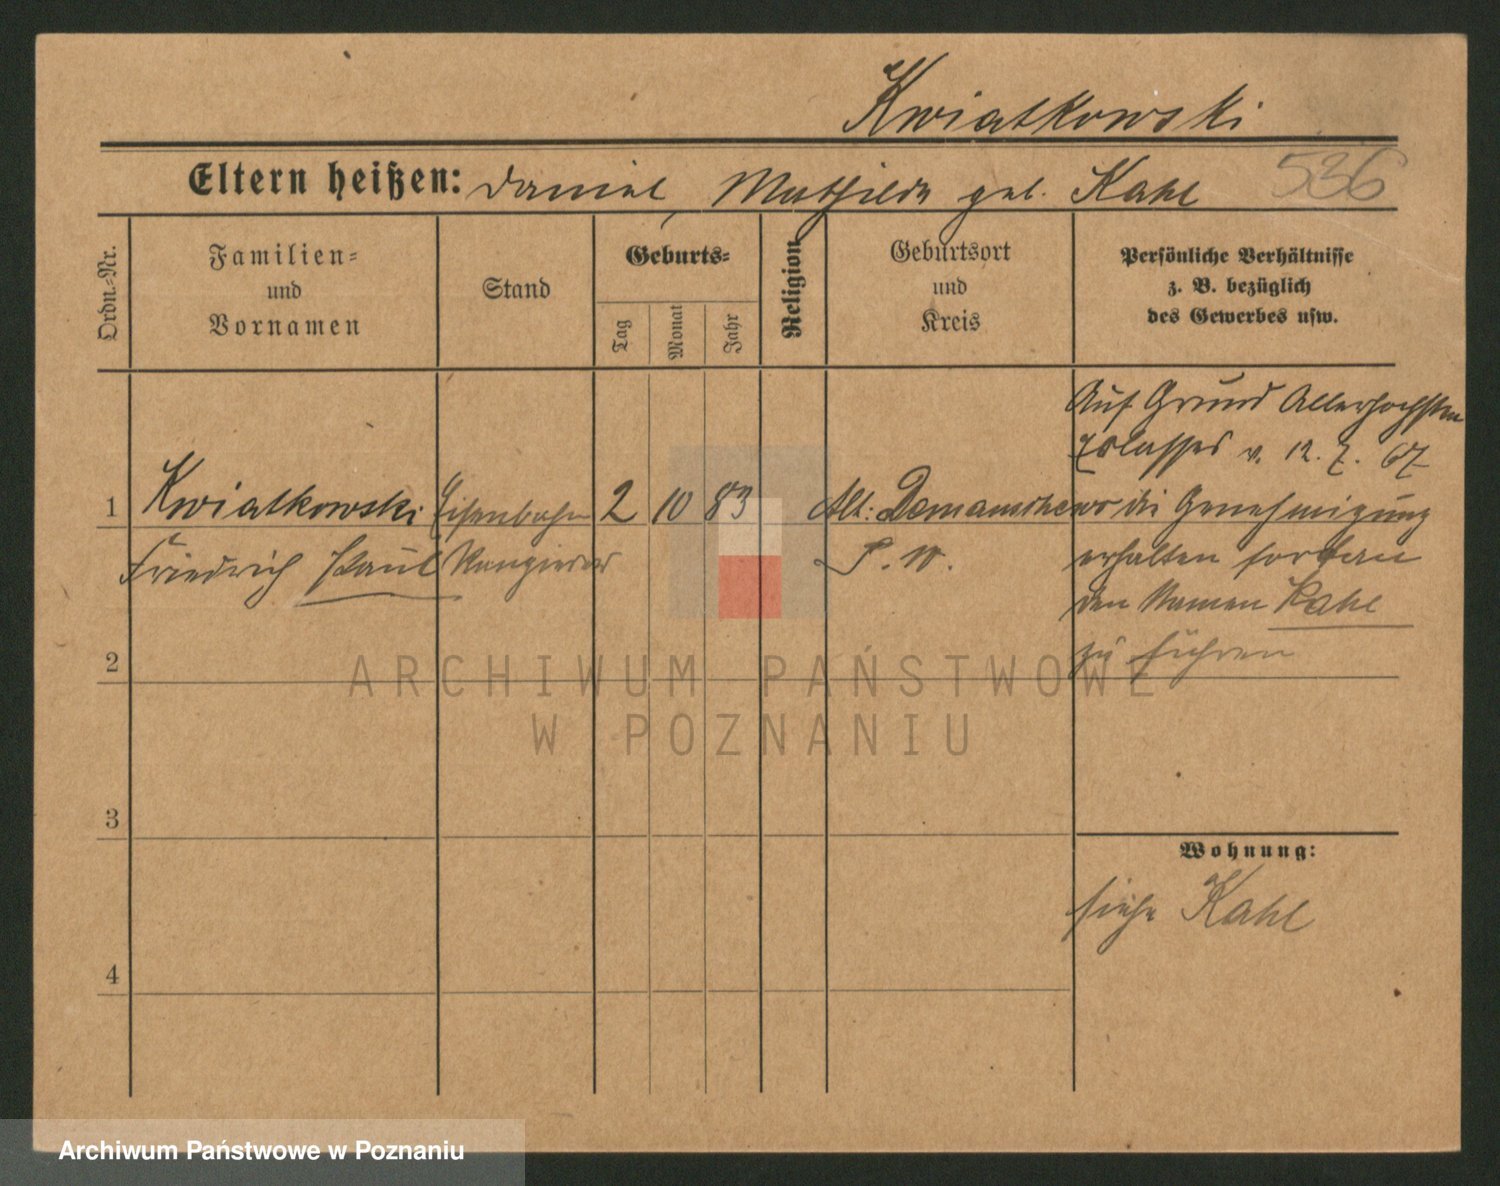 Kwiatkowski
Eltern heißen: Daniel, Mathilde geb. Kahl
536
Ordn.-Nr.
Familien-
und
Vornamen
Stand
Geburts-
Tag
Monat
Jahr
Religion
Geburtsort
und
Kreis
Persönliche Verhältnisse
z. B. bezüglich
des Gewerbes usw.
Auf Grund Allerhöchsten
Erlasses v. 12. 7. 67
1 Kwiatkowski Eisenbahn 2 10 83 Alt: wo die Genehmigung
Friedrich Paul Rangierer P. W. erhalten fortan
den Namen Kahl
zu führen
2
3
4
Wohnung:
siehe Kahl
ARCHIWUM PAŃSTWOWE
W POZNANIU
Archiwum Państwowe w Poznaniu